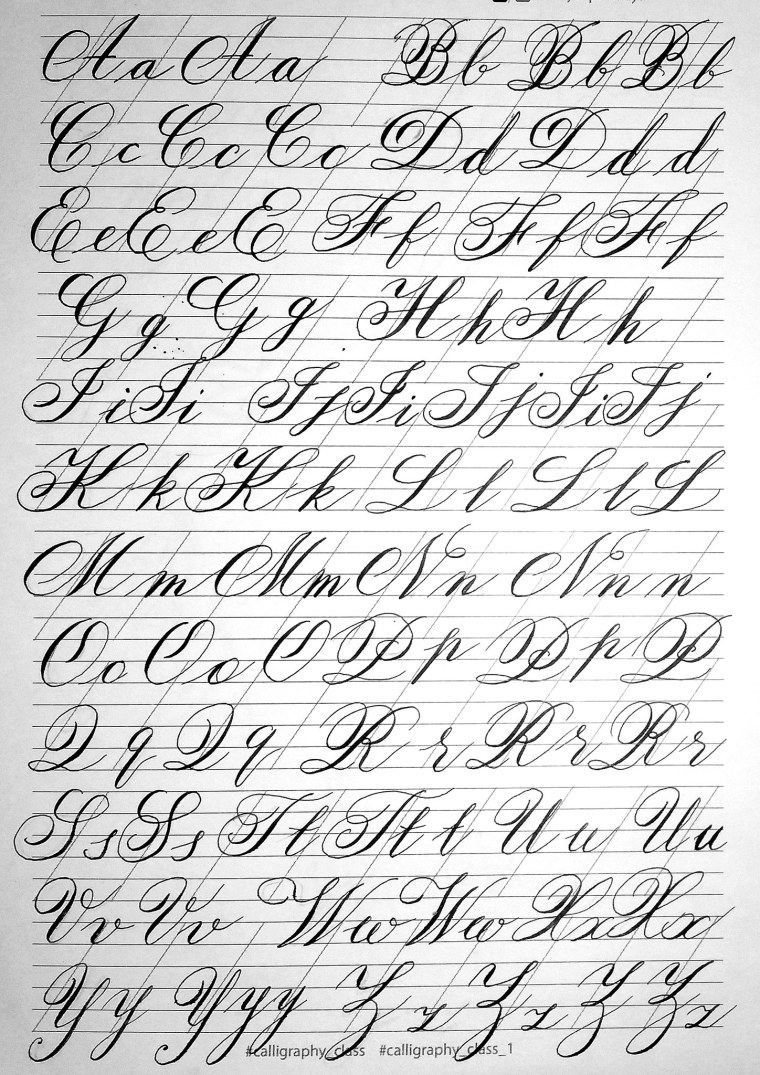 Aa Aa Bb Bb Bb
Cc Cc Cc Dd Dd d
Ee Ee E Ff Ff Ff
Gg Gg Hh Hh
Ii Ii Jj Ii Jj Ii Jj
Kk Kk Ll Ll L
Mm Mm Nn Nn n
Oo Oo O Pp Pp P
Qq Qq Rr Rr Rr
Ss Ss Tt Tt t Uu Uu
Vv Vv Ww Ww Xx Xx
Yy Yy y Zz Zz Z Zz
#calligraphy_class #calligraphy_class_1